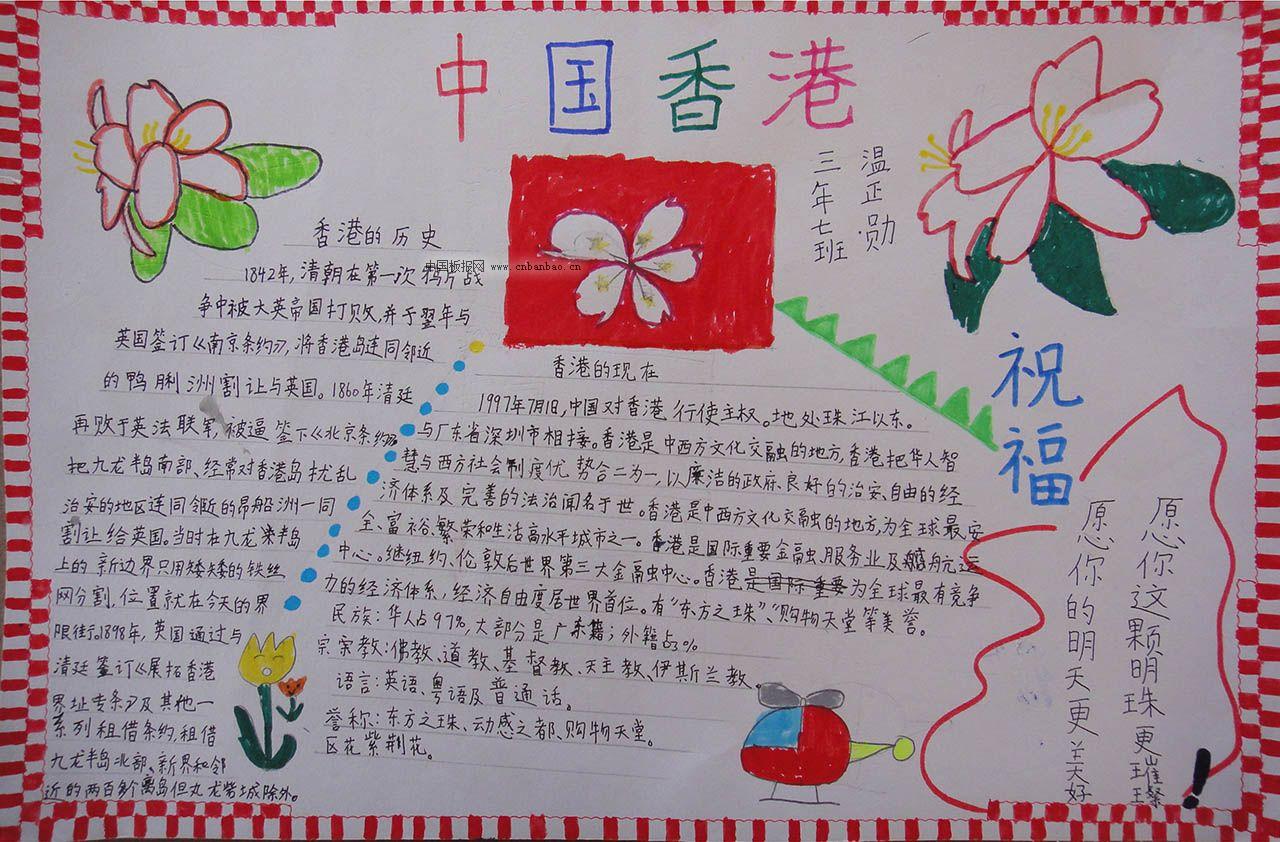 中国香港
三年七班
温正勋
香港的历史
中国板报网 www.cnbanbao.cn
1842年,清朝在第一次鸦片战
争中被大英帝国打败,并于翌年与
英国签订《南京条约》,将香港岛连同邻近
的鸭脷洲割让与英国。1860年清廷
再败于英法联军,被逼签下《北京条约》
把九龙半岛南部、经常对香港岛扰乱
治安的地区连同邻近的昂船洲一同
割让给英国。当时在九龙半岛
上的新边界只用矮矮的铁丝
网分割,位置就在今天的界
限街。1898年,英国通过与
清廷签订《展拓香港
界址专条》及其他一
系列租借条约,租借
九龙半岛北部、新界和邻
近的两百多个离岛但九龙砦城除外。
香港的现在
1997年7月1日,中国对香港行使主权。地处珠江以东。
与广东省深圳市相接。香港是中西方文化交融的地方,香港把华人智
慧与西方社会制度优势合二为一,以廉洁的政府、良好的治安、自由的经
济体系及完善的法治闻名于世。香港是中西方文化交融的地方,为全球最安
全、富裕、繁荣和生活高水平城市之一。香港是国际重要金融、服务业及航运
中心。继纽约、伦敦后世界第三大金融中心。香港是国际重要为全球最有竞争
力的经济体系,经济自由度居世界首位。有“东方之珠”、“购物天堂等美誉。
民族:华人占97%,大部分是广东籍;外籍占3%
宗宗教:佛教、道教、基督教、天主教、伊斯兰教、
语言:英语、粤语及普通话。
誉称:东方之珠、动感之都、购物天堂。
区花紫荆花。
祝福
愿你这颗明珠更璀璨
愿你的明天更美好
!